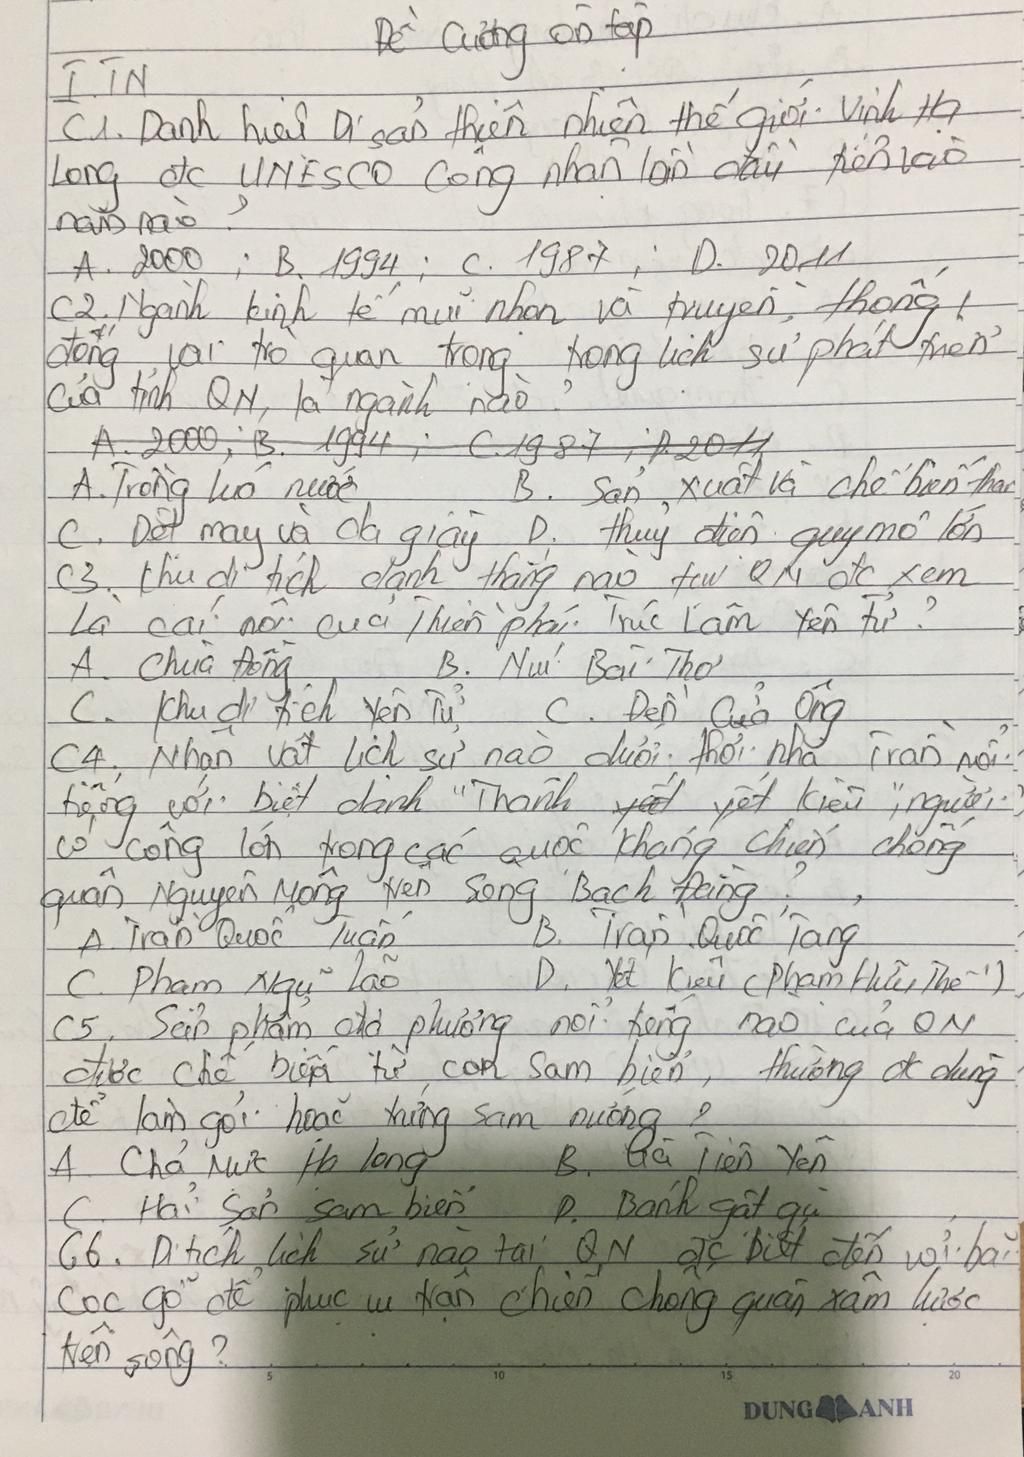 Đề Cương ôn tập
I. TN
C1. Danh hiệu Di sản thiên nhiên thế giới Vịnh Hạ
Long đc UNESCO công nhận lần đầu tiên vào
năm nào?
A. 2000 ; B. 1994 ; C. 1987 ; D. 2011
C2. Ngành kinh tế mũi nhọn và truyền thống,
đóng vai trò quan trọng trong lịch sử phát triển
của tỉnh QN, là ngành nào?
A. 2000; B. 1994 ; C. 1987 ; D. 2011
A. Trồng lúa nước B. Sản xuất và chế biến than
C. Dệt may và da giầy D. thuỷ điện quy mô lớn
C3. Khu di tích danh thắng nào tại QN đc xem
Là cái nôi của Thiền phái Trúc Lâm Yên tử?
A. Chùa Đồng B. Núi Bài Thơ
C. Khu di tích Yên Tử C. Đền Cửa Ông
C4. Nhân vật lịch sử nào dưới thời nhà Trần nổi
tiếng với biệt danh "Thánh yết kiêu", người
có công lớn trong các quộc kháng chiến chống
quân Nguyên Mông trên sông Bạch Đằng?
A. Trần Quốc Tuấn B. Trần Quốc Tảng
C. Phạm Ngũ Lão D. Yết Kiêu (Phạm Hữu Thế)
C5. Sản phẩm địa phương nổi tiếng nào của QN
được chế biến từ con Sam biển, thường đc dùng
để làm gỏi hoặc trứng sam nướng?
A Chả Mực Hạ long B. Gà Tiên Yên
C. Hải Sản sam biển D. Bánh gật gù
C6. Di tích lịch sử nào tại QN đc biết đến với bãi
Cọc gỗ để phục vụ trận chiến chống quân xâm lược
trên sông?
5 10 15 20
DUNG ANH